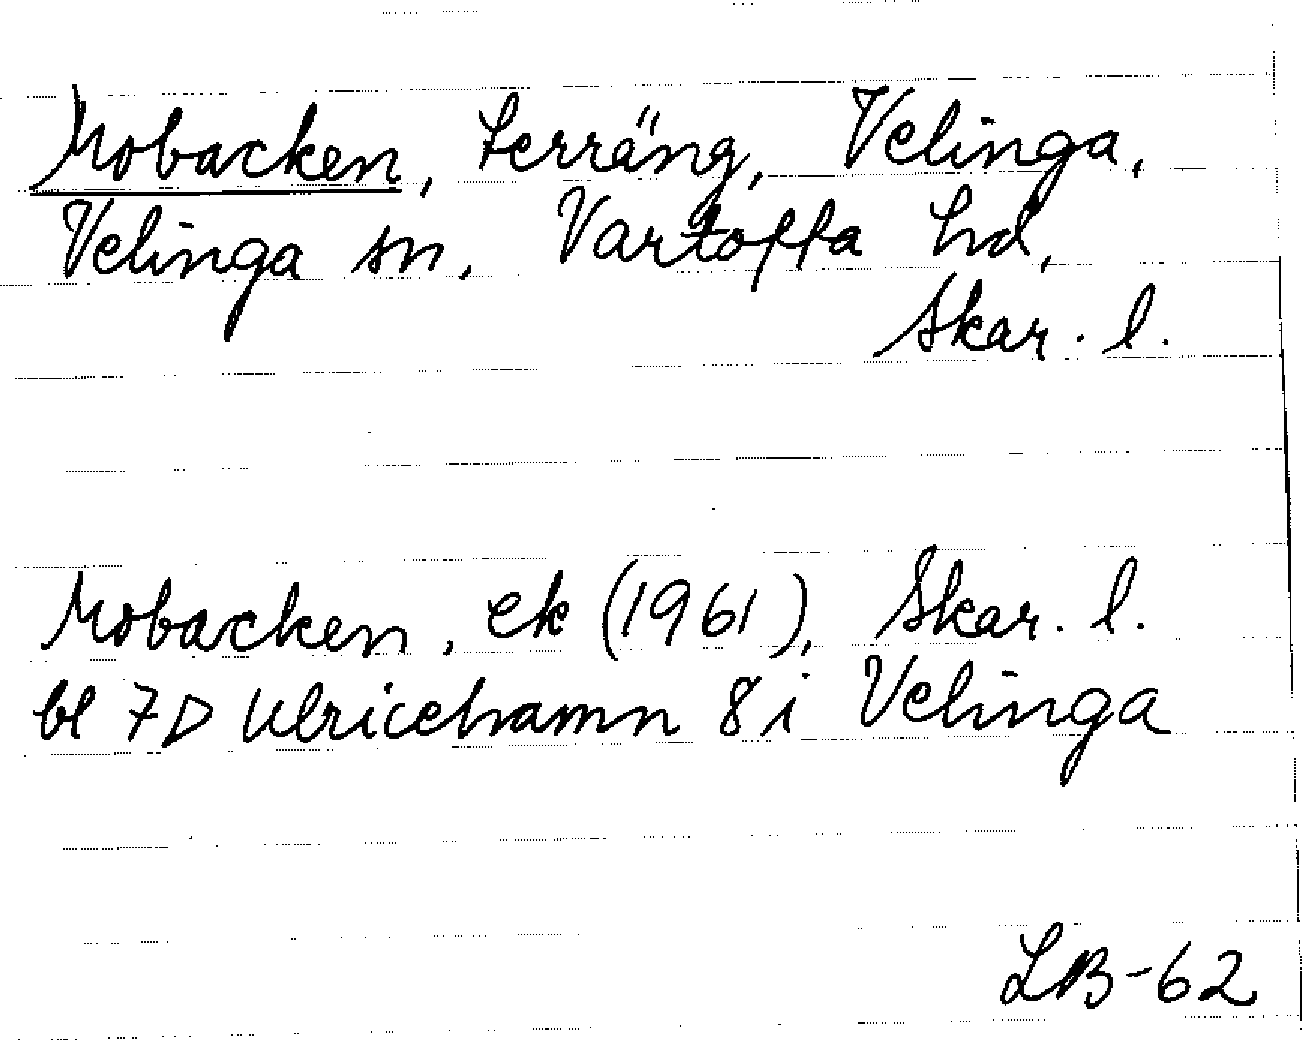 Mobacken, terräng, Velinga,
Velinga sn, Vartofta hd,
Skar. l.
Mobacken, ek (1961), Skar. l.
bl 7D Ulricehamn 8i Velinga
LB-62